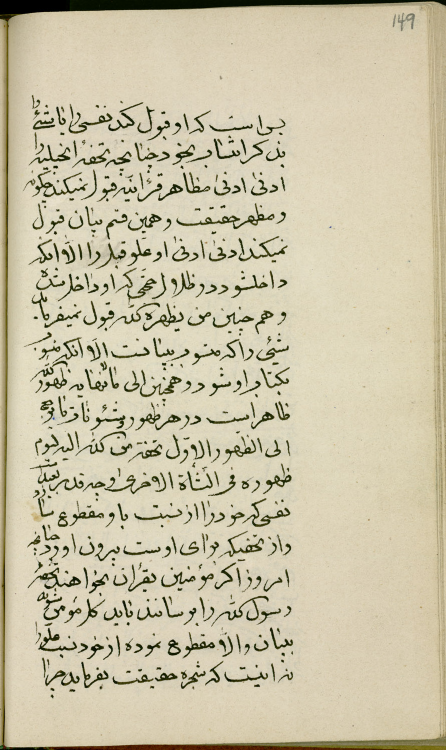 149
براست که او قبول کند نفسی را یا شیئ را
بذکر انتساب بخود چنانچه تحفهٔ انجیلیه را
ادنی ادنی مظاهر قرآنیه قبول نمیکند چگونه
و مظهر حقیقت و همین قسم بیان قبول
نمیکند ادنی ادنی او علو قبل را الا آنکه
داخل شود در ظلال حجتی که او داخل شده
و هم چنین من یظهره الله قبول نمیفرماید
شیئی را که منسوب ببیان است الا آنکه منسوب
بکتاب او شود و همچنین الی ما لانهایه ظهور الله
ظاهر است در هر ظهور
الی الظهور الاول تحفة من الله الیه لیوم
ظهوره فی النشأة الاخری وچه قدر بعید
نفسی که خود را از نسبت باو مقطوع سازد
و از تحفیکه برای اوست بیرون آورد چنانچه
امروز اگر مؤمنین بقرآن بخواهند تحفه
رسول الله را باو رسانند باید کل مؤمن شوند
ببیان والا مقطوع نموده از خود نسبت علو را
نه اینست که شجره حقیقت بفرماید چرا